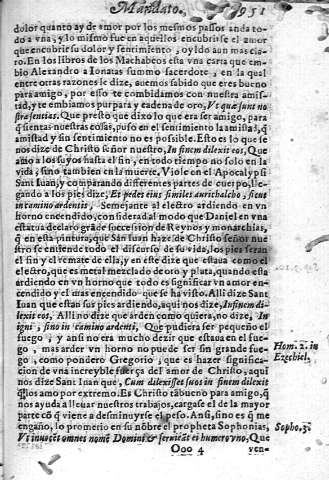 Mandato. 951
dolor quanto ay de amor por los mesmos passos anda to-
do a vna, y lo mismo fue en aquellos encubrirse el amor
que encubrir su dolor y sentimiento, oyldo aun mas cla-
ro. En los libros de los Machabeos esta vna carta que em-
bio Alexandro a Ionatas summo sacerdote, en la qual
entre otras razones le dize, auemos sabido que eres bueno
para amigo, por esso te combidamos con nuestra amis-
tad, y te embiamos purpara y cadena de oro, Vt quæ sunt no
stra sentias. Que presto que dixo lo que era ser amigo, para
q̃ sientas nuestras cosas, puso en el sentimiento la amistad, q̃
amistad y sin sentimiento no es possible. Esto es lo que
nos dize de Christo señor nuestro, In finem dilexit eos, Que
amò a los suyos hasta el fin, en todo tiempo no solo en la
vida, sino tambien en la muerte. Viole en el Apocalypsi
Sant Iuan, y comparando diferentes partes de cuerpo, lle-
gando a los pies dize, Et pedes eius similes aurichalcho, sicut
in camino ardentis, Semejante al electro ardiendo en vn
horno encendido, considera al modo que Daniel en vna
estatua declarò grã de succession de Reynos y monarchias,
q̃ en esta pintura, que San Iuan haze de Christo señor nue
stro se entiende todo el discurso de su vida, los pies seran
el fin y el remate de ella, y en este dize que estaua como el
electro, que es metal mezclado de oro y plata, quando esta
ardiendo en vn horno que todo es significar vn amor en-
cendido y el mas encendido que se ha visto. Alli dize Sant
Iuan que estan sus pies ardiendo, aqui nos dize, In finem di-
lexit eos, Alli no dize que arden como quiera, no dize, In
igni, sino in camino ardenti, Que pudiera ser pequeño el
fuego, y ansi no era mucho dezir que estaua en el fue-
go, mas arder vn horno no puede ser sin grande fue-
go, como pondero Gregorio, que es hazer significa-
cion de vna increyble fuerça del amor de Christo, aqui
nos dize Sant Iuan que, Cum dilexisset suos in finem dilexit
q̃ los amo por extremo. Es Christo tã bueno para amigo, q̃
nos ayuda a lleuar nuestros trabajos, cargase el de la mayor
parte cõ q̃ viene a desminuyrse el peso. Ansi, sino es q̃ me
engaño, lo promerio en su nõbre el propheta Sophonias,
Vt inuocẽt omnes nomẽ Domini & seruiãt ei humero vno, Que
Hom. 2. in
Ezechiel.
Sopho. 3.
Ooo 4
ven-